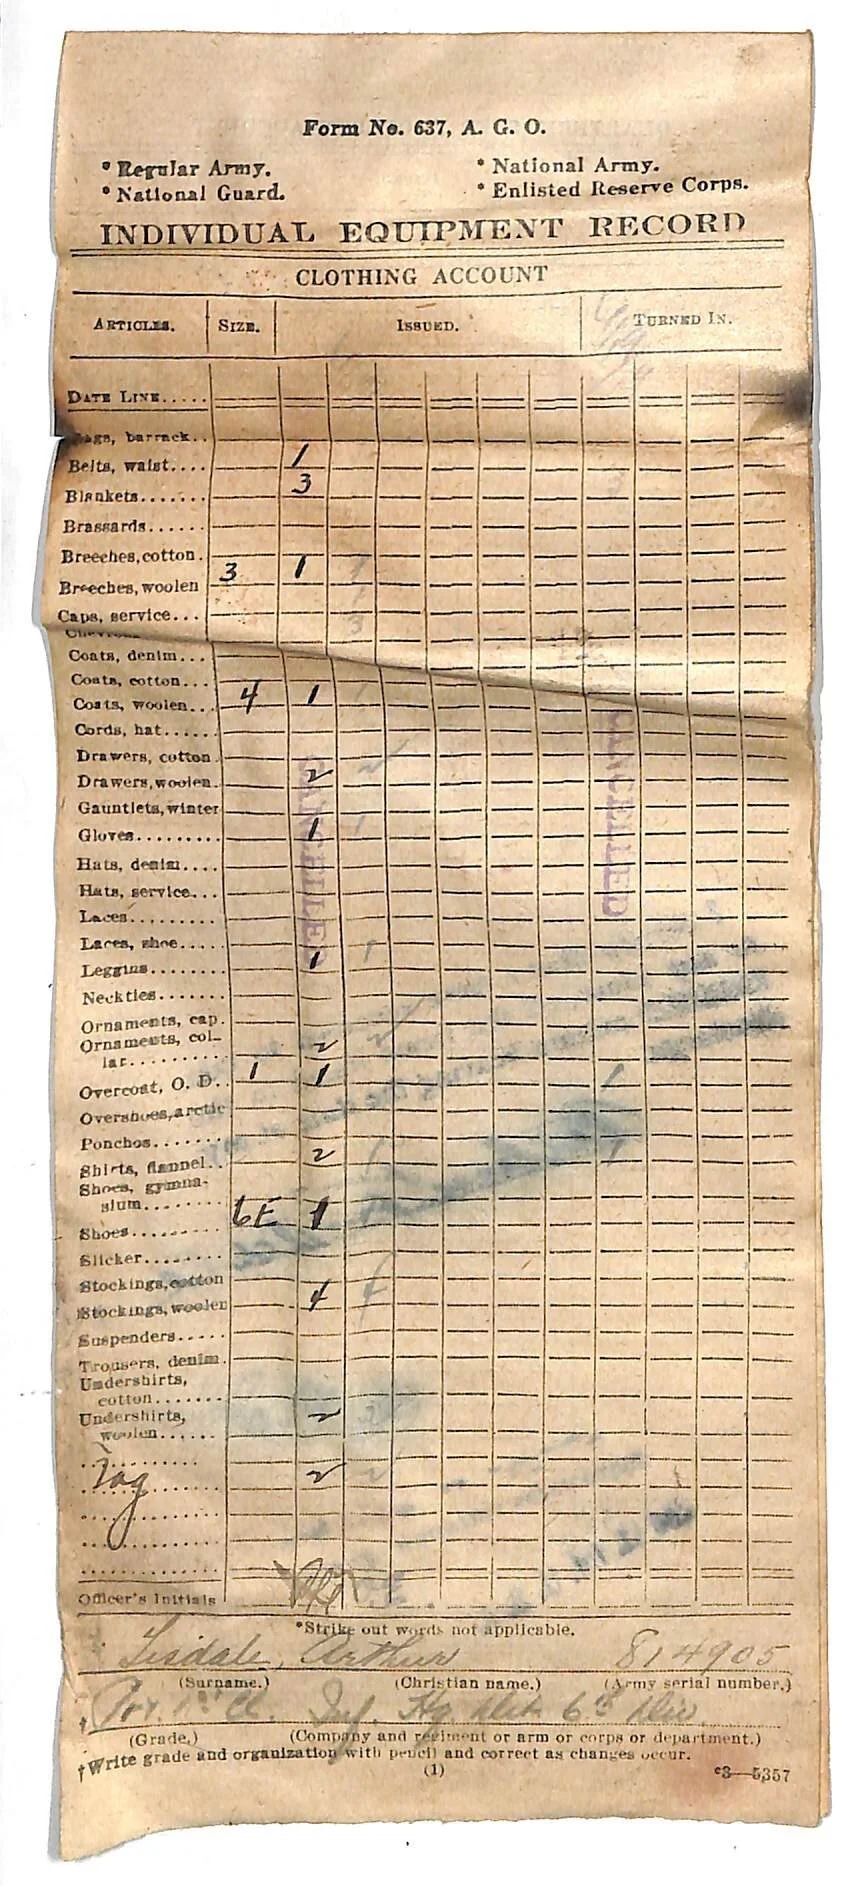 Form No. 637, A. G. O.
* Regular Army. * National Army.
* National Guard. * Enlisted Reserve Corps.
INDIVIDUAL EQUIPMENT RECORD
CLOTHING ACCOUNT
ARTICLES. SIZE. ISSUED. TURNED IN.
DATE LINE.....
barrack..
Belts, waist.... 1
Blankets....... 3
Brassards......
Breeches, cotton.
Breeches, woolen 3 1 1
Caps, service... 3
Coats, denim...
Coats, cotton...
Coats, woolen... 4 1 1
Cords, hat......
Drawers, cotton.
Drawers, woolen. 2 2
Gauntlets, winter
Gloves......... 1 1
Hats, denim....
Hats, service...
Laces.........
Laces, shoe.....
Leggins........ 1 1
Neckties.......
Ornaments, cap.
Ornaments, col-
lar.......... 2 2
Overcoat, O. D.. 1 1 1
Overshoes, arctic
Ponchos.......
Shirts, flannel.. 2 1 1
Shoes, gymna-
sium........
Shoes......... 6E 1 1
Slicker.........
Stockings, cotton
Stockings, woolen 4 4
Suspenders.....
Trousers, denim.
Undershirts,
cotton.......
Undershirts,
woolen...... 2 2
Tag 2 2
CANCELLED
CANCELLED
Officer's Initials
*Strike out words not applicable.
Tisdale, Arthur 814905
(Surname.) (Christian name.) (Army serial number.)
† Pvt. 1st Cl. Inf. Hq. 6th Div.
(Grade.) (Company and regiment or arm or corps or department.)
†Write grade and organization with pencil and correct as changes occur.
(1) c3—5357